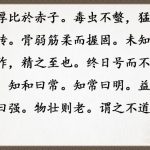 比於赤子。毒虫不螫，猛
。骨弱筋柔而握固。未知
作，精之至也。终日号而不
。知和曰常。知常曰明。益
曰强。物壮则老。谓之不道